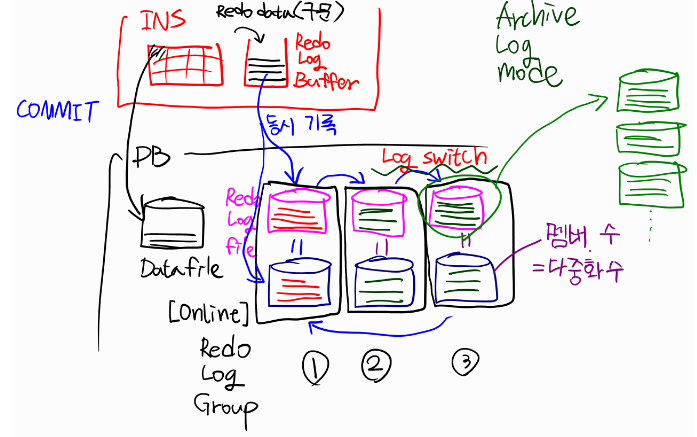 INS
Redo data(구문)
Redo
Log
Buffer
Archive
Log
mode
COMMIT
동시 기록
DB
Log switch
Redo
Log
file
Datafile
멤버 수
=다중화 수
[Online]
Redo
Log
Group
① ② ③